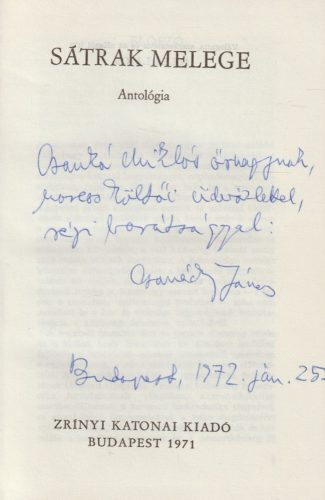 SÁTRAK MELEGE
Antológia
Csankó Miklós őrnagynak,
költői üdvözlettel,
régi barátsággal:
Csanády János
Budapest, 1972. jan. 25.
ZRÍNYI KATONAI KIADÓ
BUDAPEST 1971